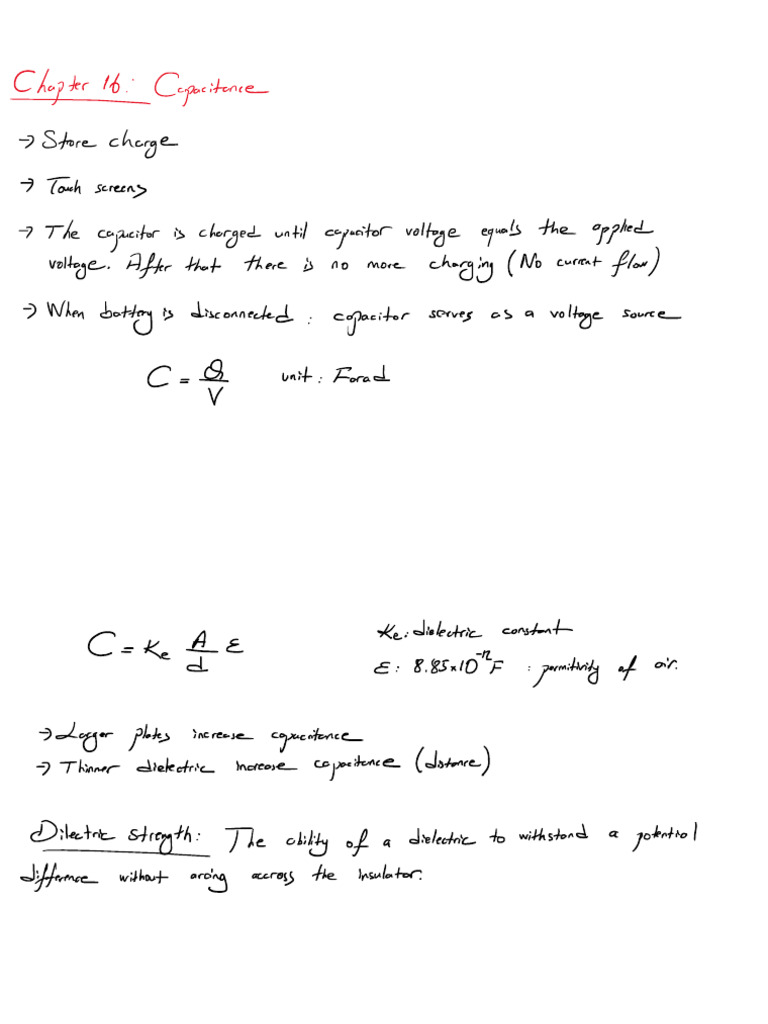 Chapter 16: Capacitance
→ Store charge
→ Touch screens
→ The capacitor is charged until capacitor voltage equals the applied
voltage. After that there is no more charging (No current flow)
→ When battery is disconnected : capacitor serves as a voltage source
C = Q/V unit : Farad
C = Ke A/d ε
Ke: dielectric constant
ε : 8.85×10⁻¹² F : permitivity of air.
→ Larger plates increase capacitance
→ Thinner dielectric increase capacitance (distance)
Dilectric strength: The ability of a dielectric to withstand a potential
difference without arcing accross the insulator.